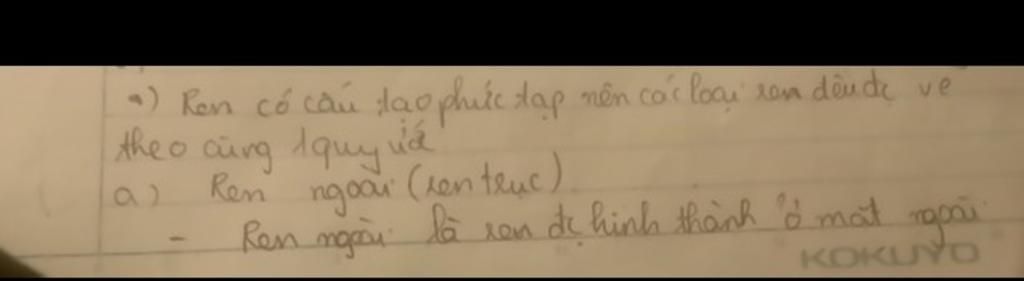 *) Ren có cấu tạo phức tạp nên các loại ren đều đc vẽ
theo cùng 1 quy ước
a) Ren ngoài (ren trục)
- Ren ngoài là ren đc hình thành ở mặt ngoài
KOKUYO